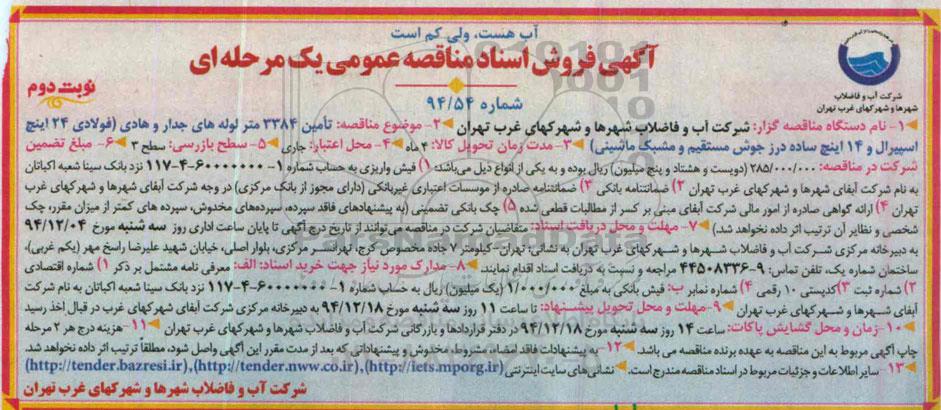 آب هست، ولی کم است
آگهی فروش اسناد مناقصه عمومی یک مرحله ای
نوبت دوم
شماره ۹۴/۵۴
شرکت آب و فاضلاب
شهرها و شهرکهای غرب تهران
۱- نام دستگاه مناقصه گزار: شرکت آب و فاضلاب شهرها و شهرکهای غرب تهران ۲- موضوع مناقصه: تأمین ۳۳۸۴ متر لوله های جدار و هادی (فولادی ۲۴ اینچ
اسپیرال و ۱۴ اینچ ساده درز جوش مستقیم و مشبک ماشینی) ۳- مدت زمان تحویل کالا: ۴ ماه ۴- محل اعتبار: جاری ۵- سطح بازرسی: سطح ۳ ۶- مبلغ تضمین
شرکت در مناقصه: ۲۸۵/۰۰۰/۰۰۰ (دویست و هشتاد و پنج میلیون) ریال بوده و به یکی از انواع ذیل می‌باشد: ۱) فیش واریزی به حساب شماره ۱-۶۰۰۰۰۰۰۰-۴-۱۱۷ نزد بانک سینا شعبه اکباتان
به نام شرکت آبفای شهرها و شهرکهای غرب تهران ۲) ضمانتنامه بانکی ۳) ضمانتنامه صادره از موسسات اعتباری غیربانکی (دارای مجوز از بانک مرکزی) در وجه شرکت آبفای شهرها و شهرکهای غرب
تهران ۴) ارائه گواهی صادره از امور مالی شرکت آبفای مبنی بر کسر از مطالبات قطعی شده ۵) چک بانکی تضمینی (به پیشنهادهای فاقد سپرده، سپرده‌های مخدوش، سپرده های کمتر از میزان مقرر، چک
شخصی و نظایر آن ترتیب اثر داده نخواهد شد.) ۷- مهلت و محل دریافت اسناد: متقاضیان شرکت در مناقصه می‌توانند از تاریخ درج آگهی تا پایان ساعت اداری روز سه شنبه مورخ ۹۴/۱۲/۰۴
به دبیرخانه مرکزی شرکت آب و فاضلاب شهرها و شهرکهای غرب تهران به نشانی: تهران- کیلومتر ۷ جاده مخصوص کرج، تهرانسر مرکزی، بلوار اصلی، خیابان شهید علیرضا راسخ مهر (یکم غربی)،
ساختمان شماره یک، تلفن تماس: ۹-۴۴۵۰۸۳۳۶ مراجعه و نسبت به دریافت اسناد اقدام نمایند. ۸- مدارک مورد نیاز جهت خرید اسناد: الف: معرفی نامه مشتمل بر ذکر ۱) شماره اقتصادی
۲) شماره ثبت ۳) کدپستی ۱۰ رقمی ۴) شماره نمابر ب: فیش بانکی به مبلغ ۱/۰۰۰/۰۰۰ (یک میلیون) ریال به حساب شماره ۱-۶۰۰۰۰۰۰۰-۴-۱۱۷ نزد بانک سینا شعبه اکباتان به نام شرکت
آبفای شهرها و شهرکهای غرب تهران ۹- مهلت و محل تحویل پیشنهاد: تا ساعت ۱۱ روز سه شنبه مورخ ۹۴/۱۲/۱۸ به دبیرخانه مرکزی شرکت آبفای شهرها و شهرکهای غرب تهران در قبال اخذ رسید
۱۰- زمان و محل گشایش پاکات: ساعت ۱۴ روز سه شنبه مورخ ۹۴/۱۲/۱۸ در دفتر قراردادها و بازرگانی شرکت آب و فاضلاب شهرها و شهرکهای غرب تهران ۱۱- هزینه درج هر ۲ مرحله
چاپ آگهی مربوط به این مناقصه به عهده برنده مناقصه می باشد. ۱۲- به پیشنهادات فاقد امضاء، مشروط، مخدوش و پیشنهاداتی که بعد از مدت مقرر این آگهی واصل شود، مطلقاً ترتیب اثر داده نخواهد شد.
۱۳- سایر اطلاعات و جزئیات مربوط در اسناد مناقصه مندرج است. نشانی‌های سایت اینترنتی (http://iets.mporg.ir)، (http://tender.nww.co.ir)، (http://tender.bazresi.ir)
شرکت آب و فاضلاب شهرها و شهرکهای غرب تهران